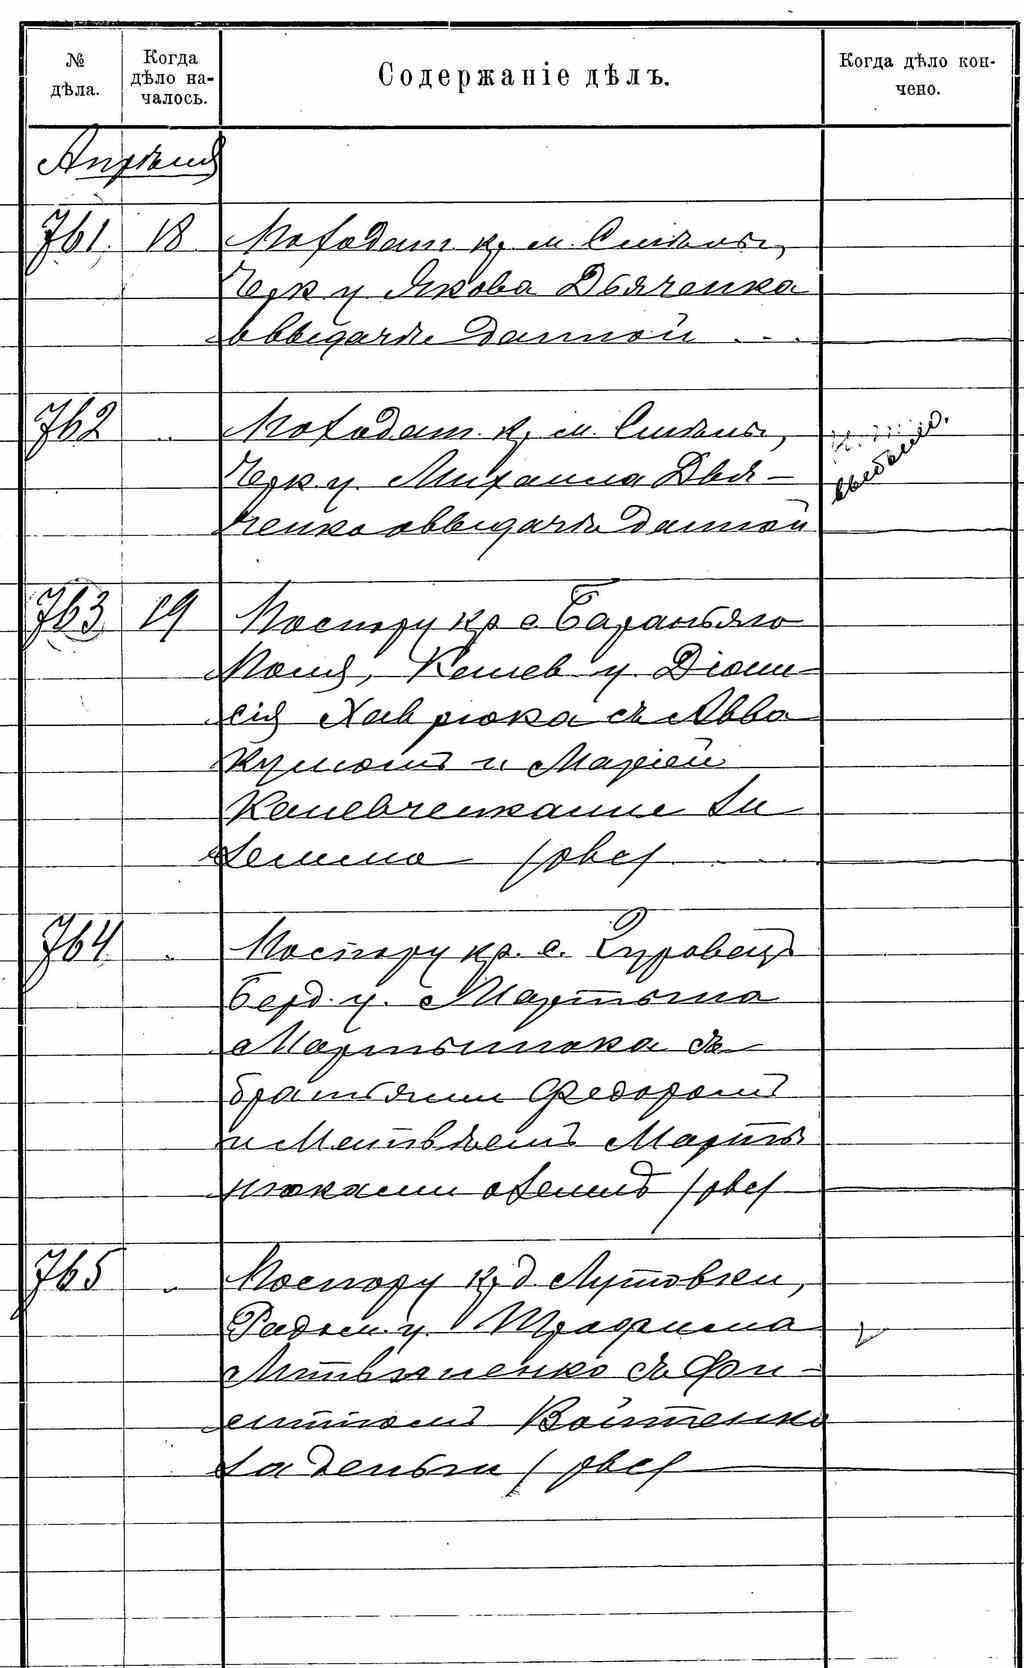 № дѣла.
Когда дѣло началось.
Содержаніе дѣлъ.
Когда дѣло кончено.
Апрѣля
761. 18 По ходат. кр. м. Смѣлы,
Черк у. Якова Дьяченка
о выдачѣ данной
762 " По ходат. кр. м. Смѣлы,
Черк. у. Михаила Дья-
ченко о выдачѣ данной
выбыло.
763 19 По спору кр с. Бараньяго
Поля, Канев. у. Діони-
сія Хаврюка съ Авва
кумомъ и Маріей
Каневченками за
землю /рвс/
764 " По спору кр. с. Чуровецъ
Берд. у. Мартына
Мартынюка съ
братьями Федоромъ
и Матвѣемъ Марты
нюками о землѣ /рвс/
765 " По спору кр. д. Лутовки,
Радом. у. Трофима
Литвиненко съ Фи-
липпомъ Войтенко
за деньги /рвс/